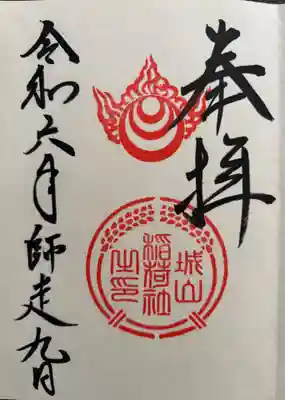 奉拝
城山
稲荷社
之印
令和六年師走九日